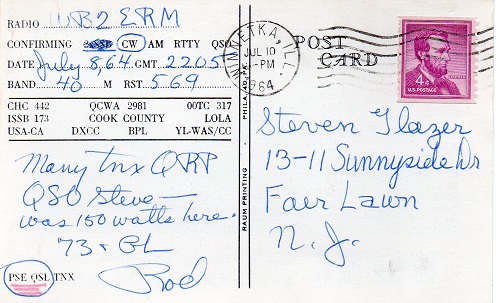 RADIO WB2ERM
CONFIRMING SSB CW AM RTTY QSO
DATE July 8, 64 GMT 2205
BAND 40 M RST 569
CHC 442 QCWA 2981 OOTC 317
ISSB 173 COOK COUNTY LOLA
USA-CA DXCC BPL YL-WAS/CC
Many tnx QRP
QSO Steve—
was 150 watts here.
73. GL
Rod
PSE QSL TNX
RAUM PRINTING PHILA. 40, PA.
WINNETKA, ILL.
JUL 10
-PM
1964
POST
CARD
4¢
U.S. POSTAGE
Steven Glazer
13-11 Sunnyside Dr
Fair Lawn
N. J.